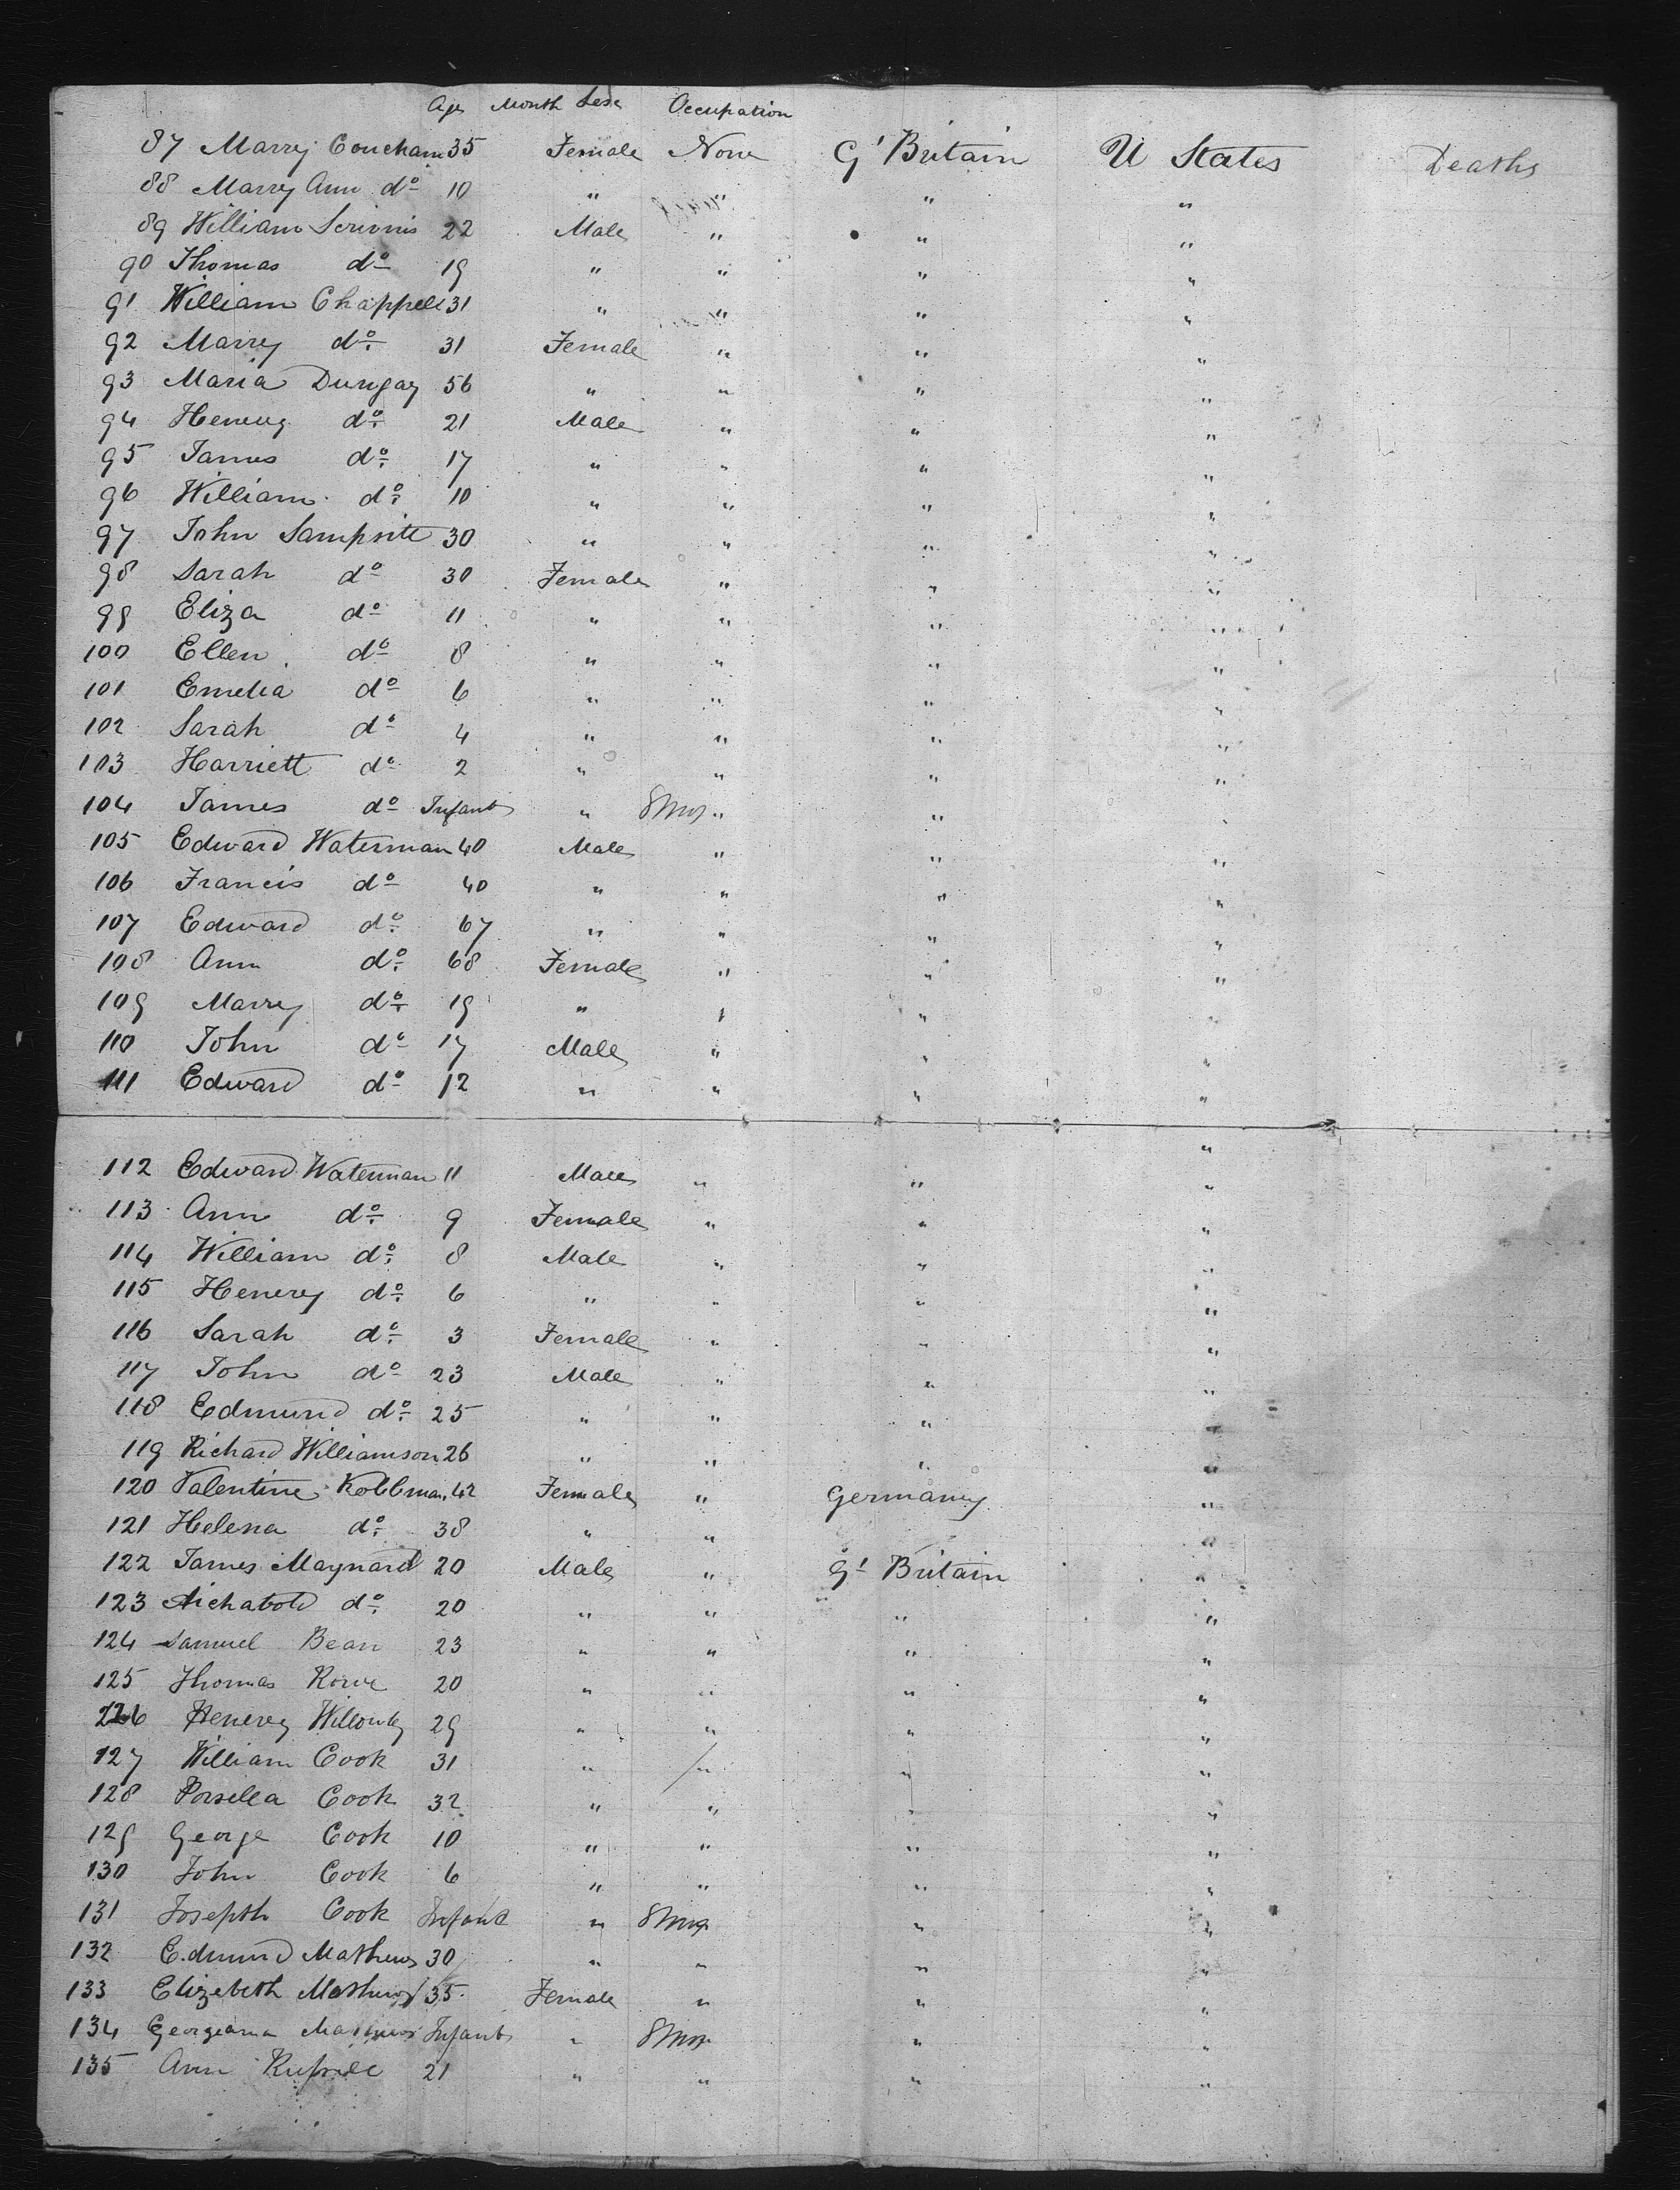 Age Month Sex Occupation
87 Marrey Coucham 35 Female None Gt Britain U States Deaths
88 Marrey Ann do 10 " " " "
89 William Scrivnis 22 Male " " "
90 Thomas do 19 " " " "
91 William Chappell 31 " " " "
92 Marrey do 31 Female " " "
93 Maria Dungay 56 " " " "
94 Henery do 21 Male " " "
95 James do 17 " " " "
96 William do 10 " " " "
97 John Sampsitt 30 " " " "
98 Sarah do 30 Female " " "
99 Eliza do 11 " " " "
100 Ellen do 8 " " " "
101 Emelia do 6 " " " "
102 Sarah do 4 " " " "
103 Harriett do 2 " " " "
104 James do Infant " 8 Mos " "
105 Edward Waterman 40 Male " " "
106 Francis do 40 " " " "
107 Edward do 67 " " " "
108 Ann do 68 Female " " "
109 Marrey do 19 " " " "
110 John do 17 Male " " "
111 Edward do 12 " " " "
112 Edward Waterman 11 Male " " "
113 Ann do 9 Female " " "
114 William do 8 Male " " "
115 Henerey do 6 " " " "
116 Sarah do 3 Female " " "
117 John do 23 Male " " "
118 Edmund do 25 " " " "
119 Richard Williamson 26 " " " "
120 Valentine Kobbman 42 Female " Germaney "
121 Helena do 38 " " "
122 James Maynard 20 Male " Gt Britain "
123 do 20 " " " "
124 Samuel Bean 23 " " " "
125 Thomas Rowe 20 " " " "
126 Henerey Willouby 29 " " " "
127 William Cook 31 " " " "
128 Porsella Cook 32 " " " "
129 George Cook 10 " " " "
130 John Cook 6 " " " "
131 Josepth Cook Infant " 8 Mos " "
132 Edmund Mathews 30 " " " "
133 Elizebeth Mathews 35 Female " " "
134 Georgeanna Mathews Infant " 8 Mos " "
135 Ann 21 " " " "